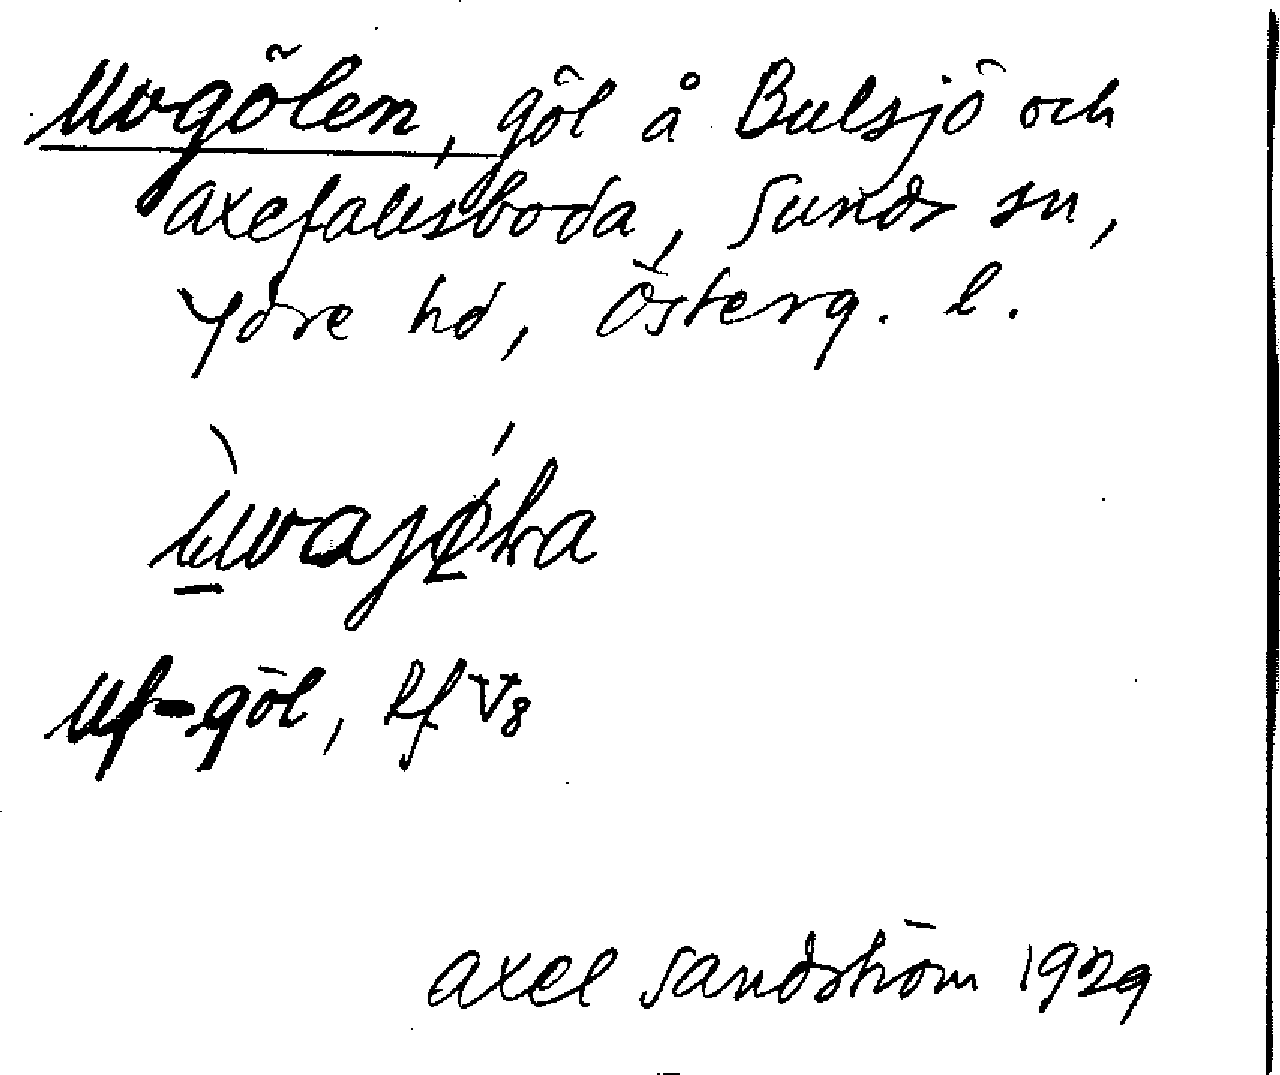 Uvgölen, göl å Bulsjö och
Axefallsboda, Sunds sn,
Ydre hd, Österg. l.
Uf-göl, Lf V8
Axel Sandström 1929